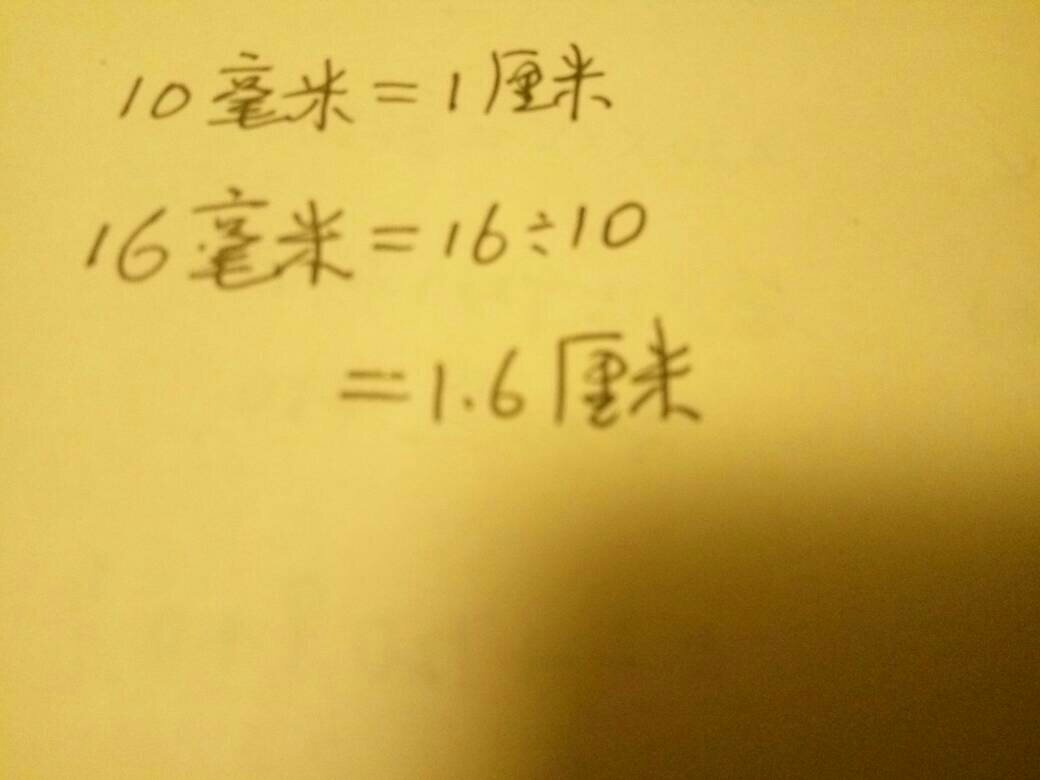 10毫米=1厘米
16毫米=16÷10
=1.6厘米